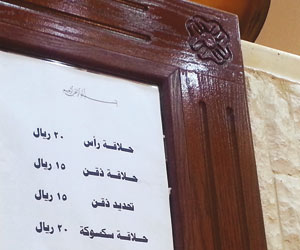 بسم الله الرحمن الرحيم
حلاقة رأس ٢٠ ريال
حلاقة ذقن ١٥ ريال
تحديد ذقن ١٥ ريال
حلاقة سكسوكة ٢٠ ريال